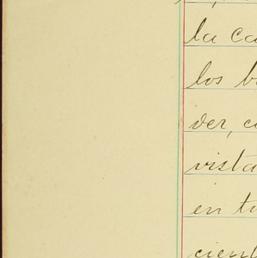 la ca
los b
der, c
vista
en tu
cient